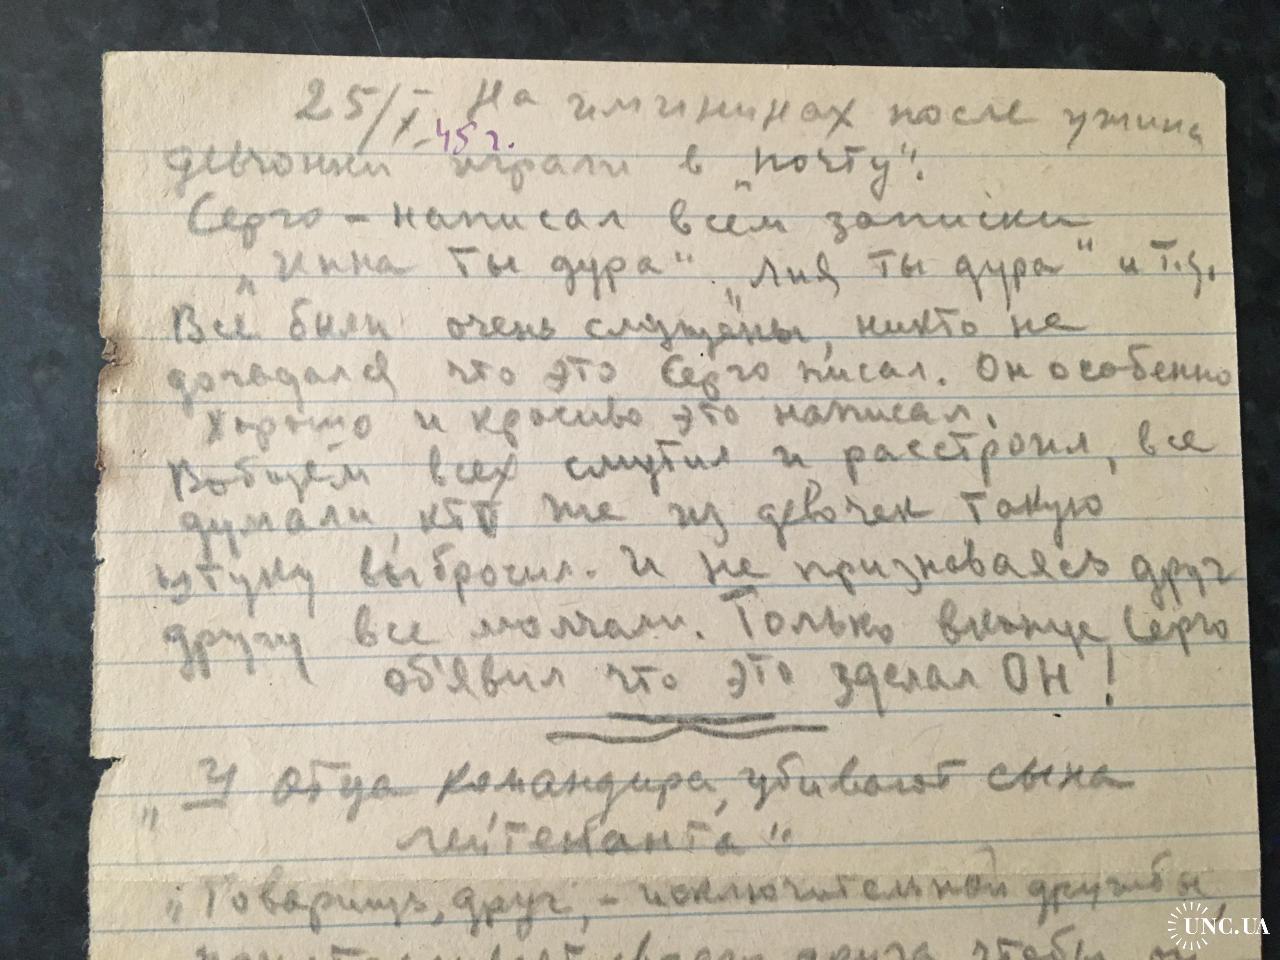 25/X. 45 г. На имининах после ужина
девчонки играли в „почту".
Серго - написал всем записки
„Инна ты дура" „Лия ты дура" и т.д.
Все были очень смущены, никто не
догадался что это Серго писал. Он особенно
хорошо и красиво это написал.
Вобщем всех смутил и расстроил, все
думали, кто же из девочек такую
штуку выбросил. И не признаваясь друг
другу все молчали. Только вконце Серго
об'явил что это зделал ОН!
„У отца командира, убивают сына
лейтенанта"
„Товарищ, друг, - исключительной дружбы
своего друга чтобы он
UNC.UA